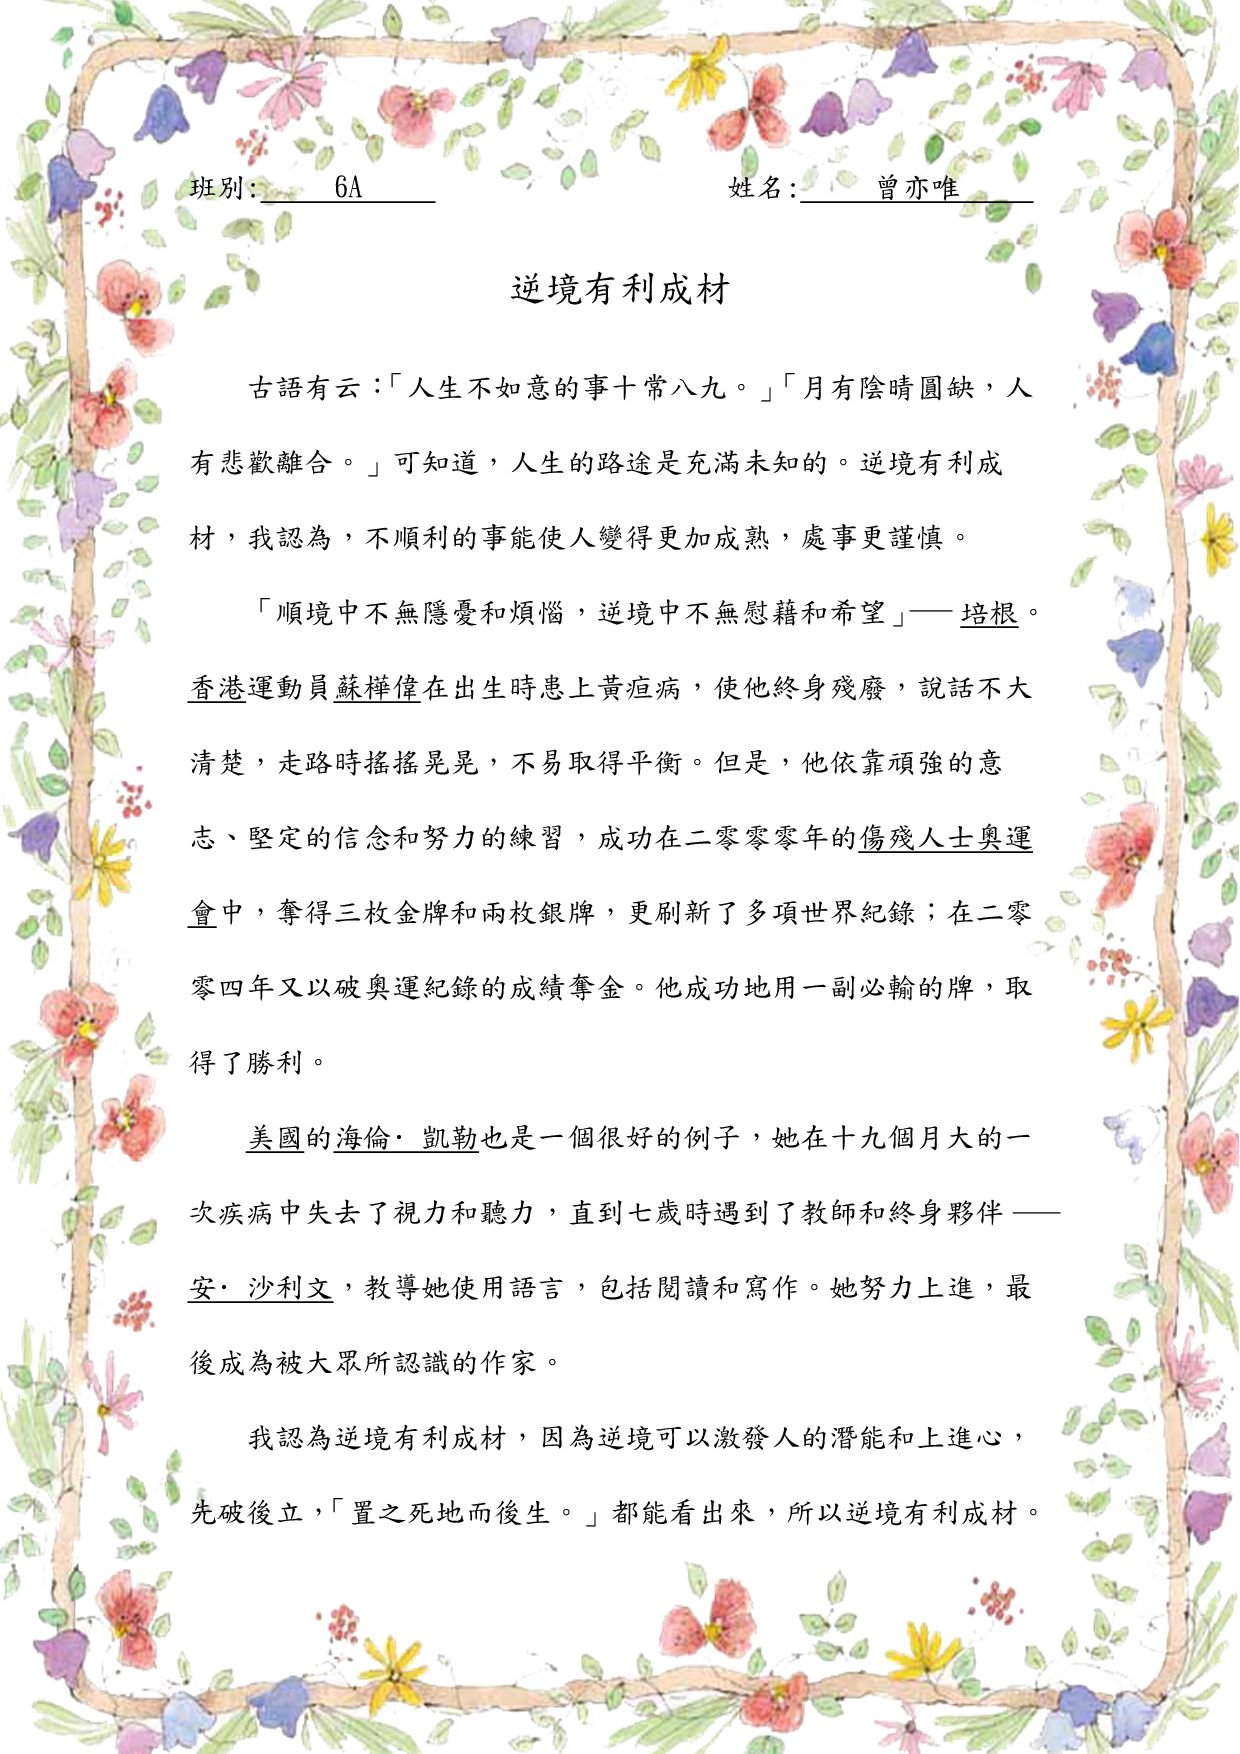 班別: 6A 姓名: 曾亦唯
逆境有利成材
古語有云：「人生不如意的事十常八九。」「月有陰晴圓缺，人
有悲歡離合。」可知道，人生的路途是充滿未知的。逆境有利成
材，我認為，不順利的事能使人變得更加成熟，處事更謹慎。
「順境中不無隱憂和煩惱，逆境中不無慰藉和希望」── 培根。
香港運動員蘇樺偉在出生時患上黃疸病，使他終身殘廢，說話不大
清楚，走路時搖搖晃晃，不易取得平衡。但是，他依靠頑強的意
志、堅定的信念和努力的練習，成功在二零零零年的傷殘人士奧運
會中，奪得三枚金牌和兩枚銀牌，更刷新了多項世界紀錄；在二零
零四年又以破奧運紀錄的成績奪金。他成功地用一副必輸的牌，取
得了勝利。
美國的海倫· 凱勒也是一個很好的例子，她在十九個月大的一
次疾病中失去了視力和聽力，直到七歲時遇到了教師和終身夥伴 ──
安· 沙利文，教導她使用語言，包括閱讀和寫作。她努力上進，最
後成為被大眾所認識的作家。
我認為逆境有利成材，因為逆境可以激發人的潛能和上進心，
先破後立，「置之死地而後生。」都能看出來，所以逆境有利成材。